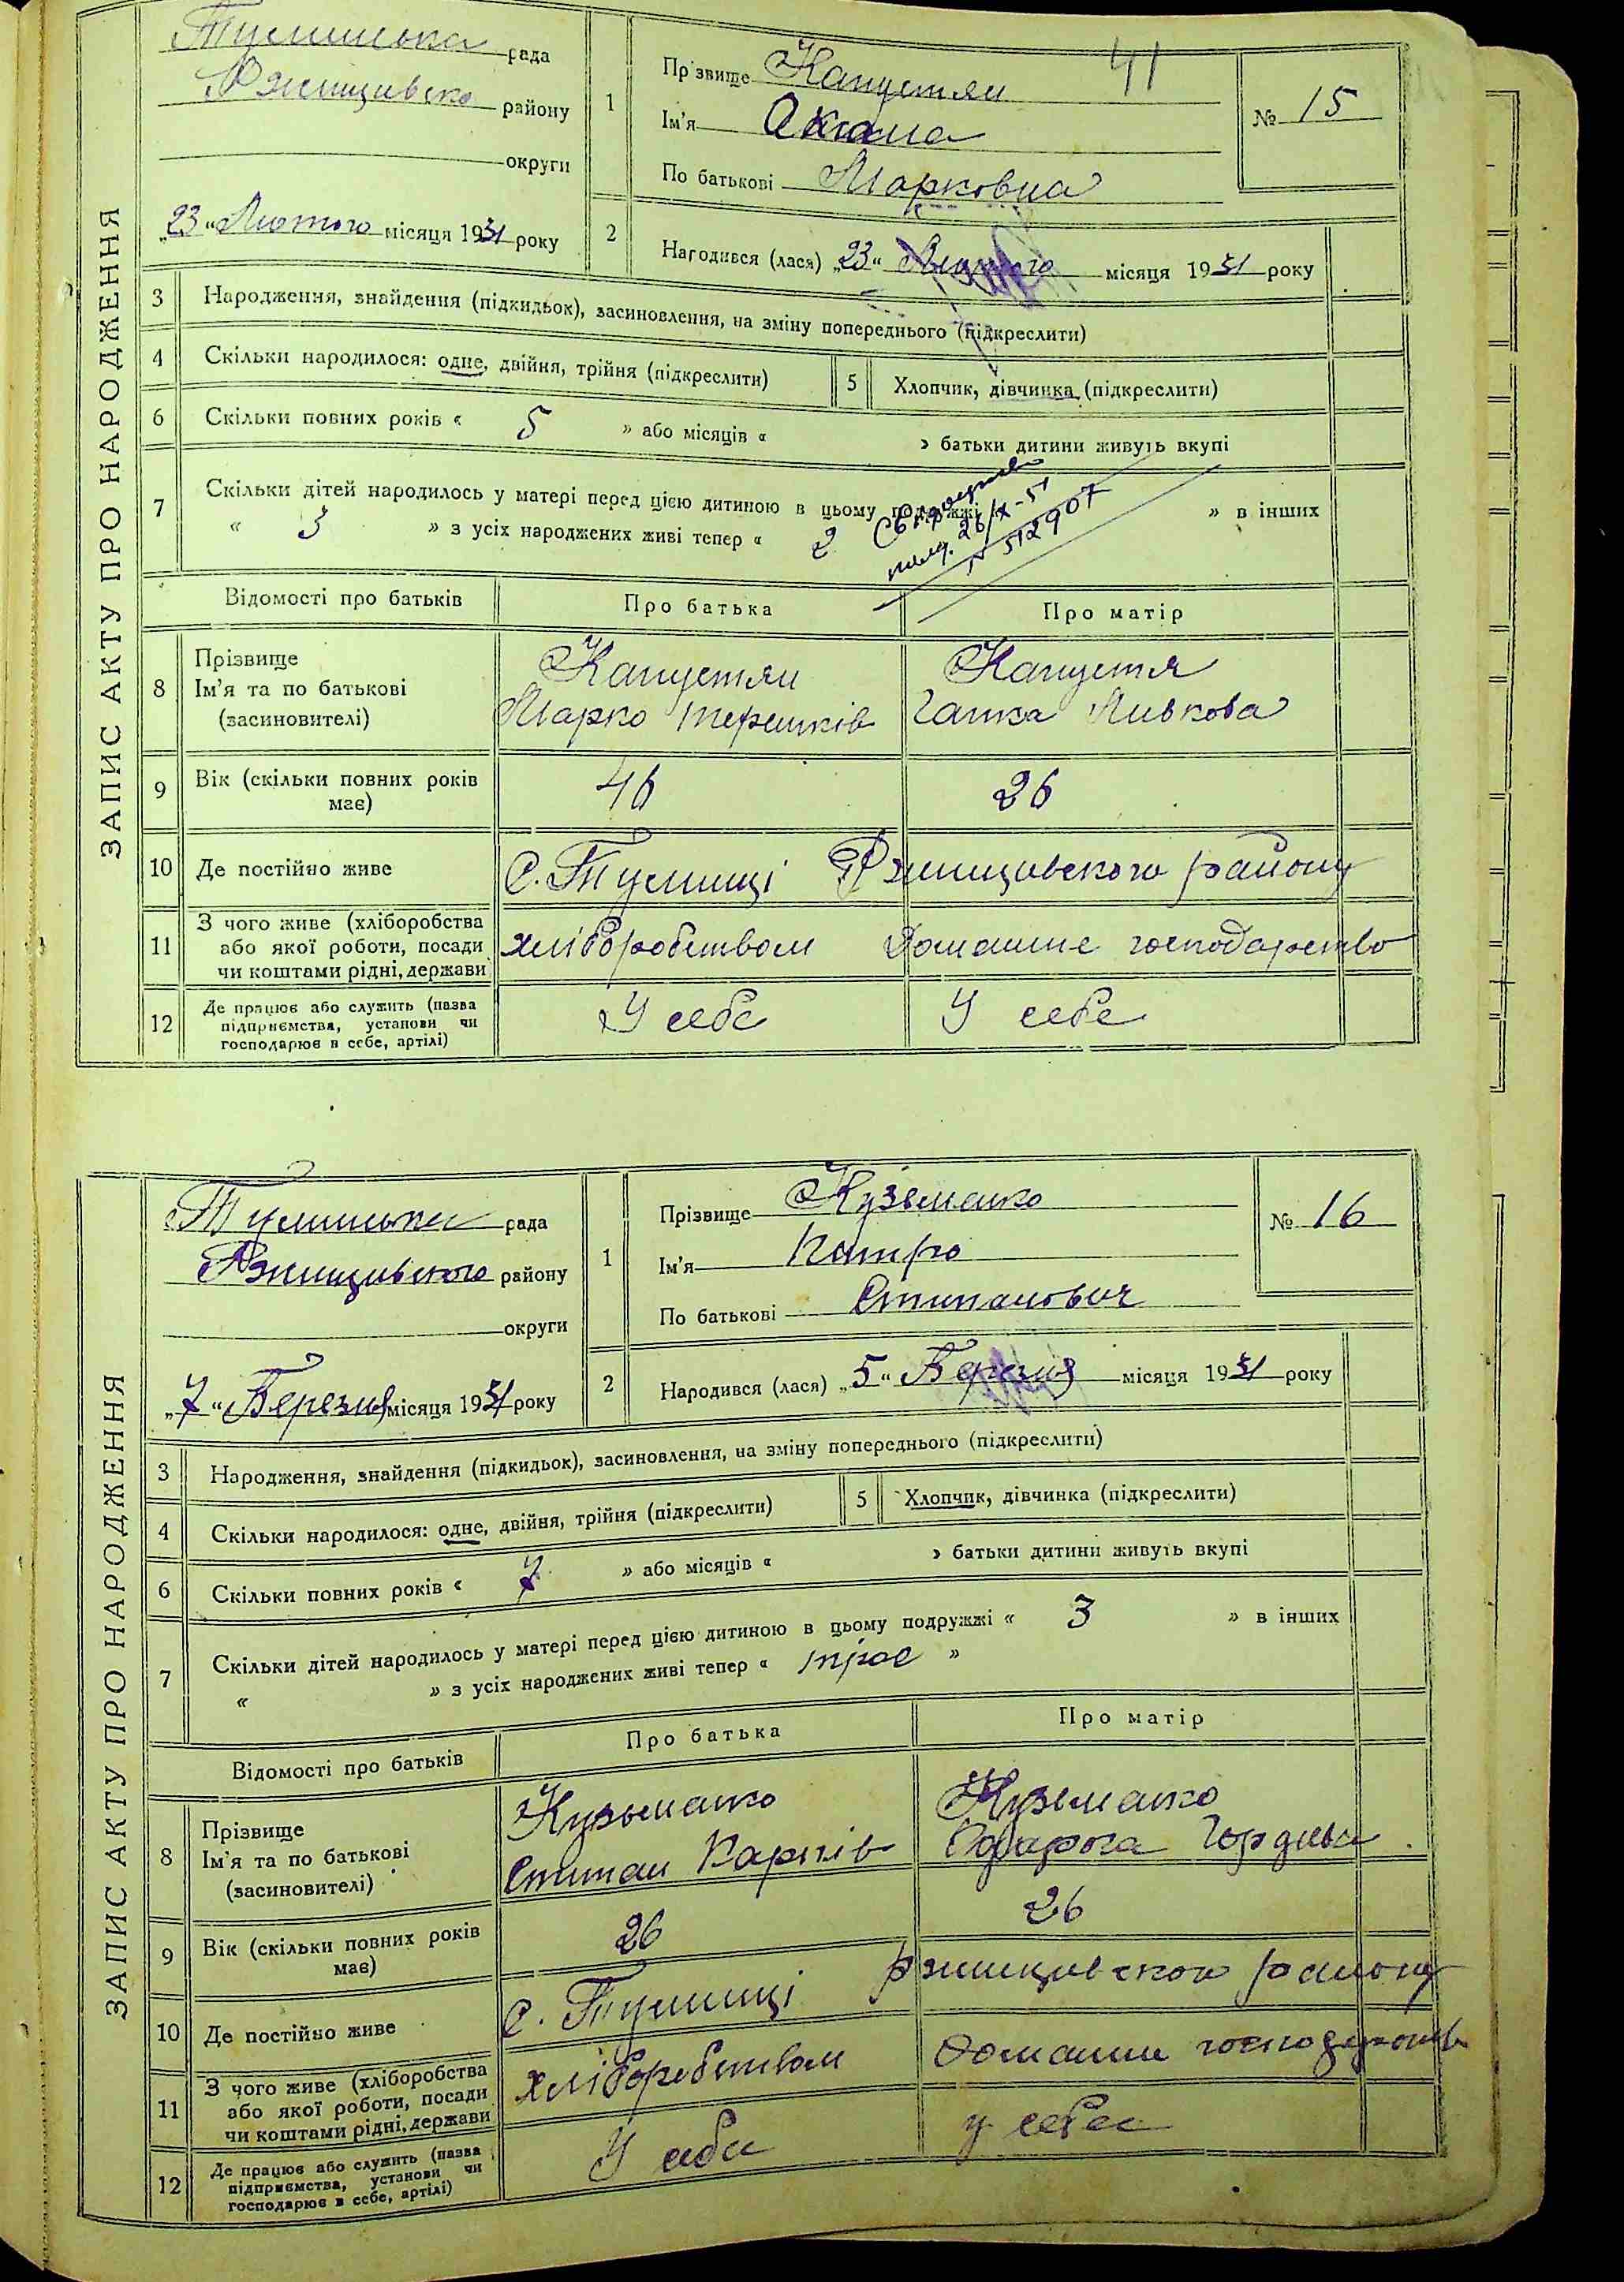 ЗАПИС АКТУ ПРО НАРОДЖЕННЯ
41
рада
району
округи
„23“ Лютого місяця 1931 року
1
Прізвище Капустян
Ім'я Оксана
По батькові Марковна
№ 15
2
Народився (лася) „23“ Лютого місяця 1931 року
3 Народження, знайдення (підкидьок), засиновлення, на зміну попереднього (підкреслити)
4 Скільки народилося: одне, двійня, трійня (підкреслити)
5 Хлопчик, дівчинка (підкреслити)
6 Скільки повних років « 5 » або місяців « » батьки дитини живуть вкупі
7 Скільки дітей народилось у матері перед цією дитиною в цьому подружжі « » в інших
« 3 » з усіх народжених живі тепер « 2
26/X-51
N 512907
Відомості про батьків
Про батька
Про матір
8 Прізвище
Ім'я та по батькові
(засиновителі)
Капустян
Марко Терешків
Капустя
Ганка Ливкова
9 Вік (скільки повних років має)
46
26
10 Де постійно живе
с. Тулинці Ржищівського району
11 З чого живе (хліборобства
або якої роботи, посади
чи коштами рідні, держави
хліборобством
Домашнє господарство
12 Де працює або служить (назва
підприємства, установи чи
господарює в себе, артілі)
У себе
У себе
ЗАПИС АКТУ ПРО НАРОДЖЕННЯ
Тулинська рада
Ржищівського району
округи
„7“ Березня місяця 1931 року
1
Прізвище Кузьменко
Ім'я Петро
По батькові Степанович
№ 16
2
Народився (лася) „5“ Березня місяця 1931 року
3 Народження, знайдення (підкидьок), засиновлення, на зміну попереднього (підкреслити)
4 Скільки народилося: одне, двійня, трійня (підкреслити)
5 Хлопчик, дівчинка (підкреслити)
6 Скільки повних років « 7 » або місяців « » батьки дитини живуть вкупі
7 Скільки дітей народилось у матері перед цією дитиною в цьому подружжі « 3 » в інших
« » з усіх народжених живі тепер « троє »
Відомості про батьків
Про батька
Про матір
8 Прізвище
Ім'я та по батькові
(засиновителі)
Кузьменко
Степан Карпів
Кузьменко
Одарка
9 Вік (скільки повних років має)
26
26
10 Де постійно живе
с. Тулинці Ржищівського району
11 З чого живе (хліборобства
або якої роботи, посади
чи коштами рідні, держави
хліборобством
12 Де працює або служить (назва
підприємства, установи чи
господарює в себе, артілі)
У себе
у себе